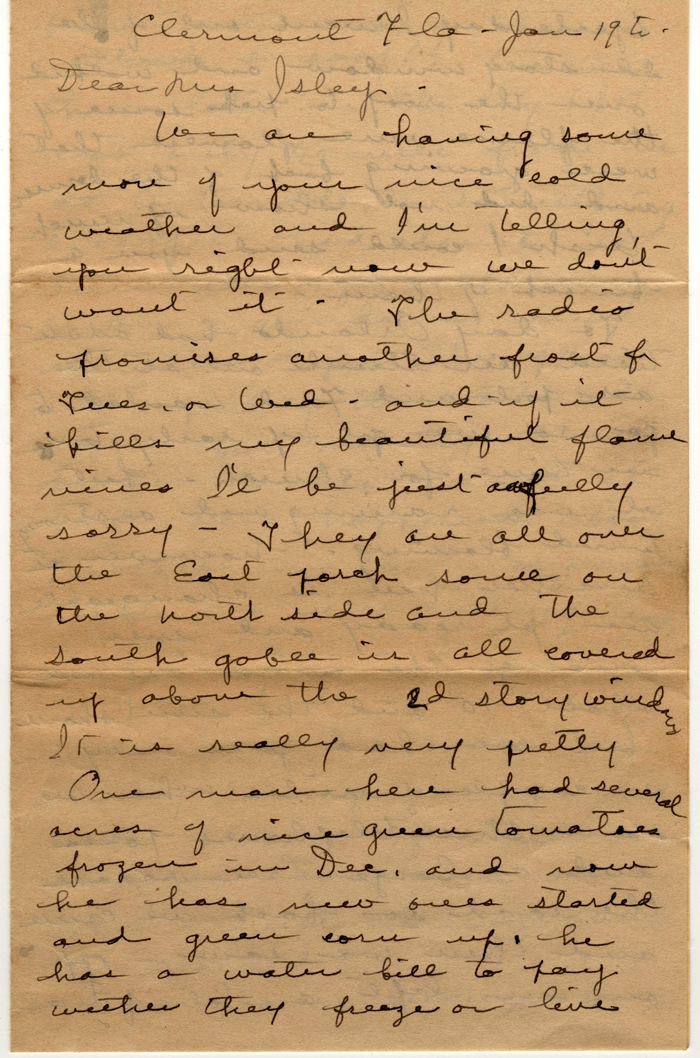 Clermont Fla - Jan 19th.
Dear Mrs Isley -
We are having some
more of your nice cold
weather and I'm telling
you right now we don't
want it - The radio
promises another frost fr
Tues. or Wed - and if it
kills my beautiful flame
vines I'll be just awfully
sorry - They are all over
the East porch some on
the north side and the
south gobee is all covered
up above the 2d story windows
It is really very pretty
One man here had several
acres of nice green tomatoes
frozen in Dec. and now
he has new ones started
and green corn up. he
has a water bill to pay
wether they freeze or live